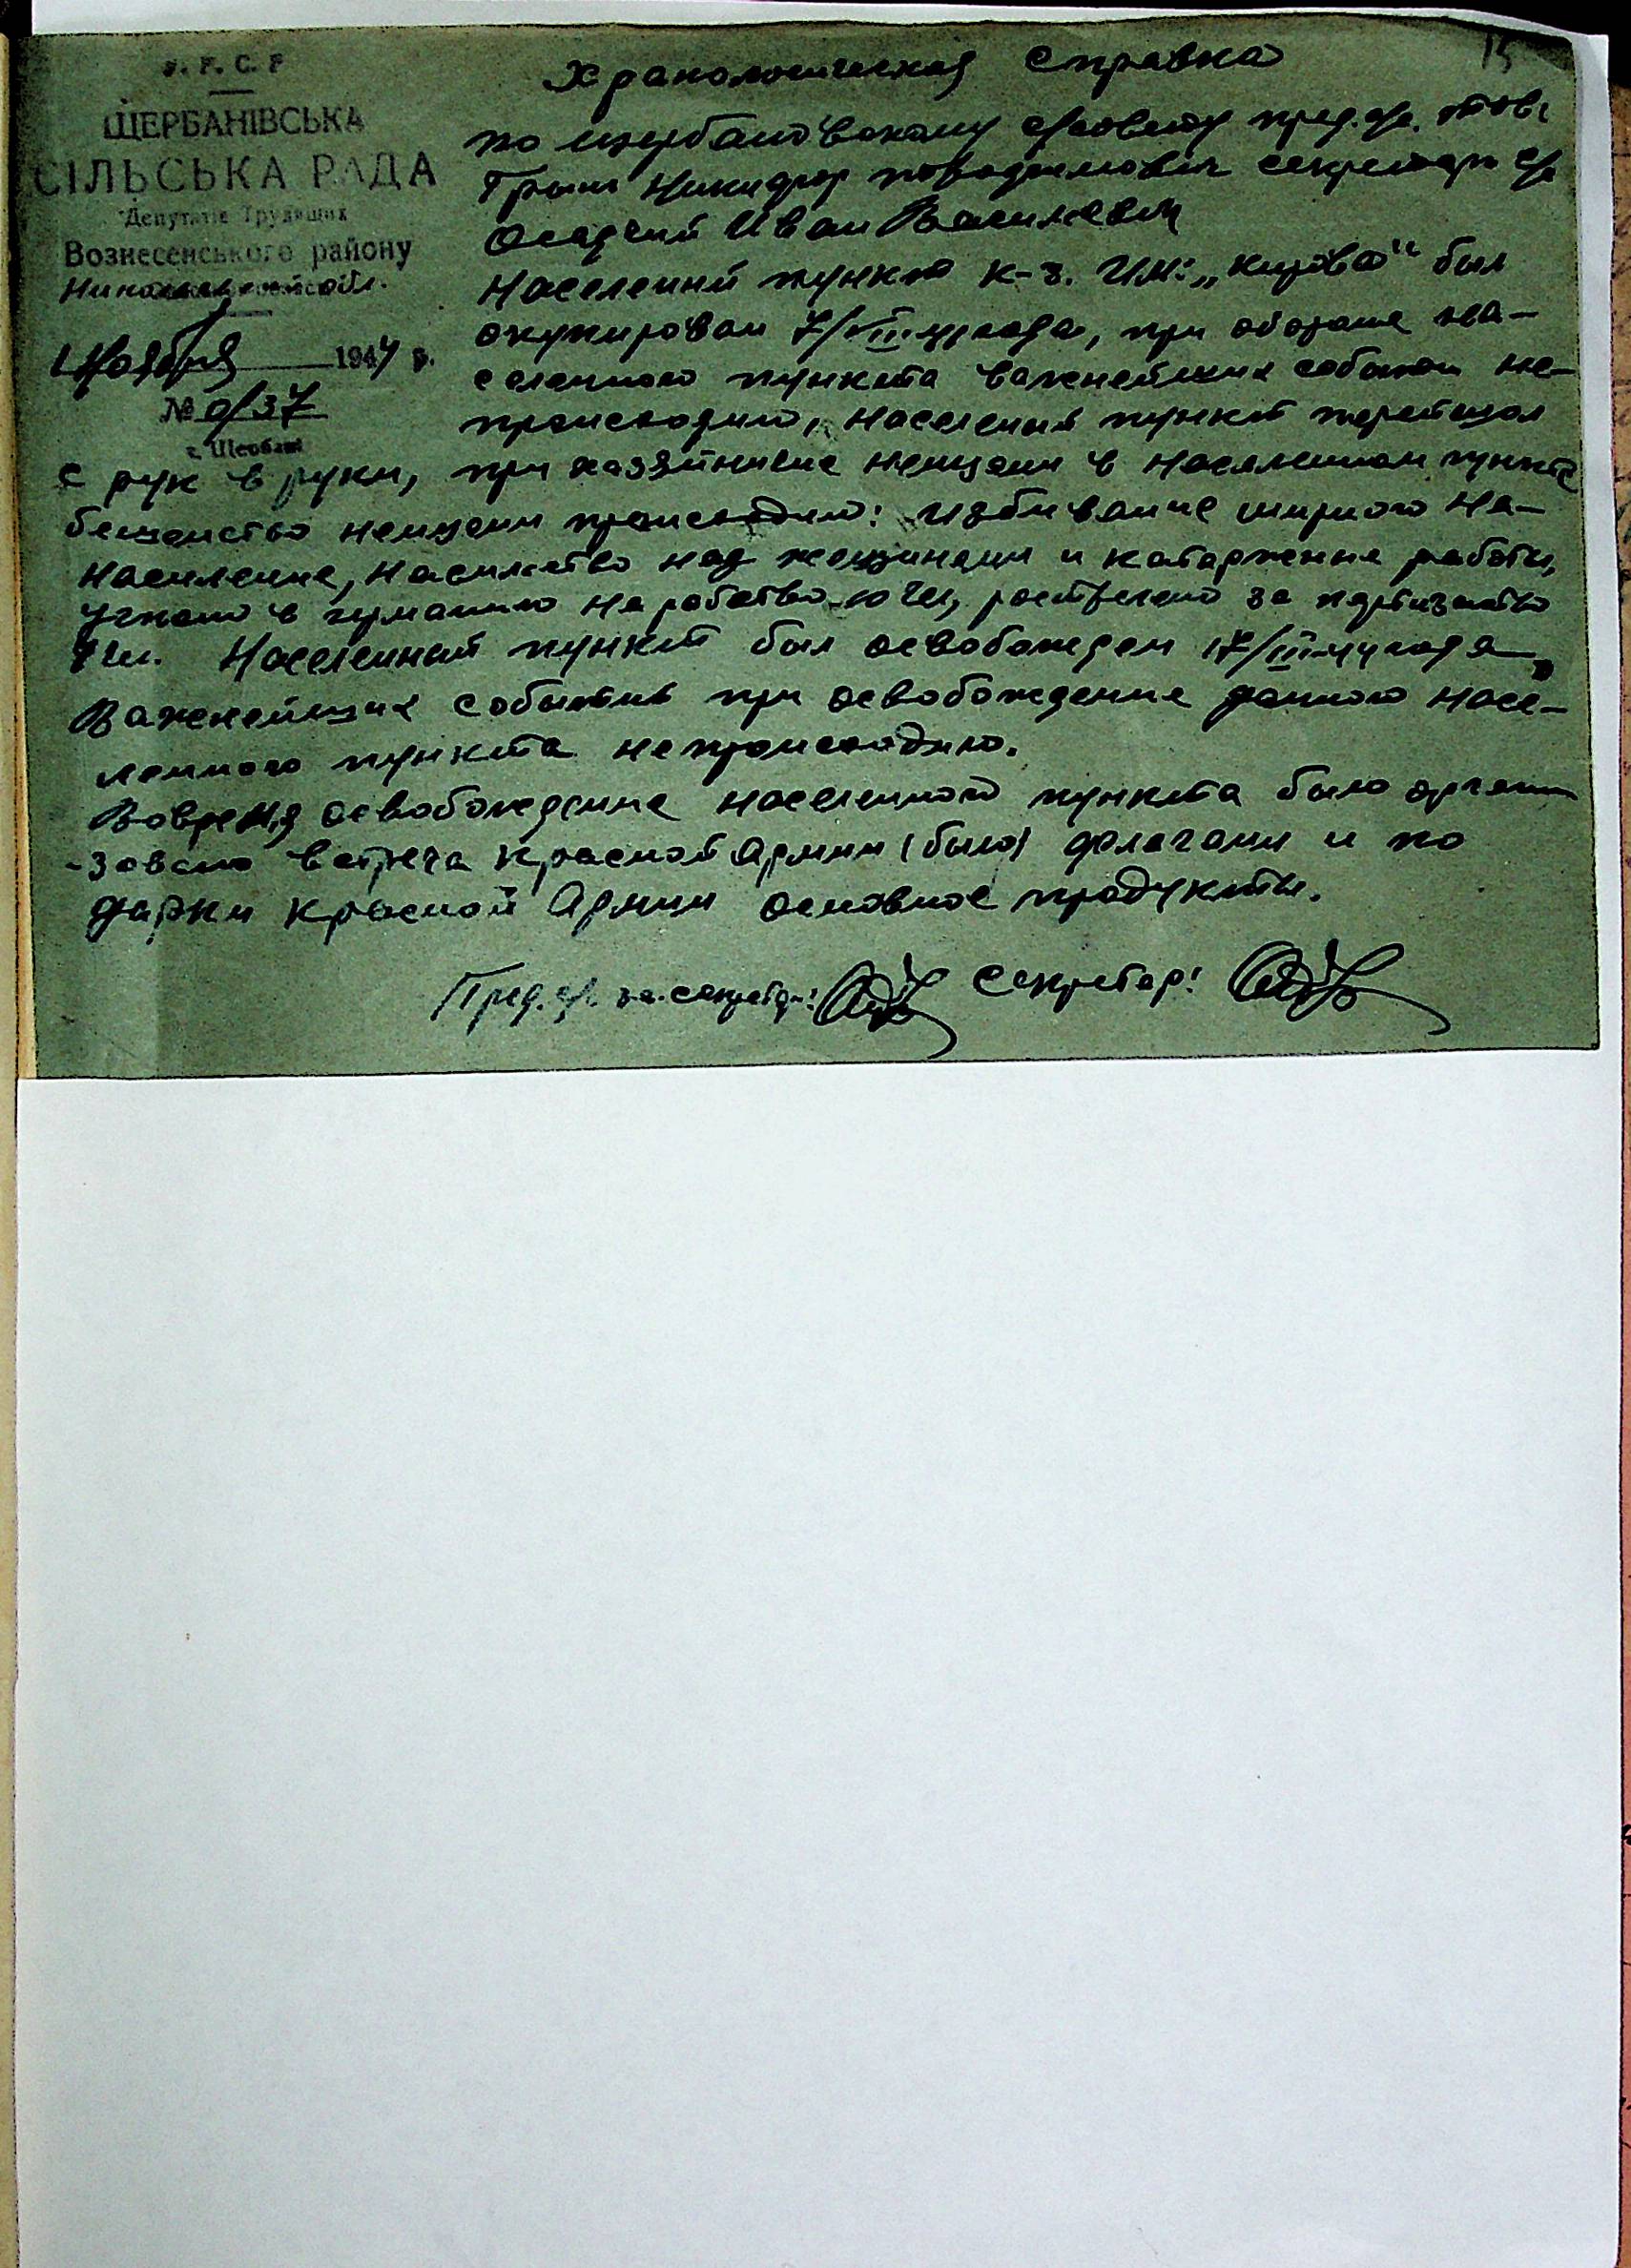 15
У. Р. С. Р
ЩЕРБАНІВСЬКА
СІЛЬСЬКА РАДА
Депутатів Трудящих
Вознесенського району
обл.
Ноября 1944 р.
№ 0/37
с. Щербані
Хранологическая справка
по щербановскому с/совету пред. с/с. тов.
Никифор секретарь с/с
Осадчий Иван Василевич
Населений пункт к-з. им: „Кирова" был
окупирован 7/VIII-41 года, при обороне на-
селенного пункта важнейших событий не-
происходило, населений пункт перейшол
с рук в руки, при хазяйничие немцами в населенном пункте
бешенство немцами происходило: избивание мирного на-
население, насилство над женщинами и катаржение работы,
угнано в германию на робатво 10 чел, растрелено за партизанство
чел. Населенный пункт был освобожден 17/III-44 года,
Важнейших событив при освобождение данного насе-
ленного пункта непроисходило.
Вовремя освобождение населенного пункта было органи
-зовано встреча красной Армии (было) флагами и по
дарки красной Армии основное продукты.
Пред. с/с. за. секретарь: Секретар: